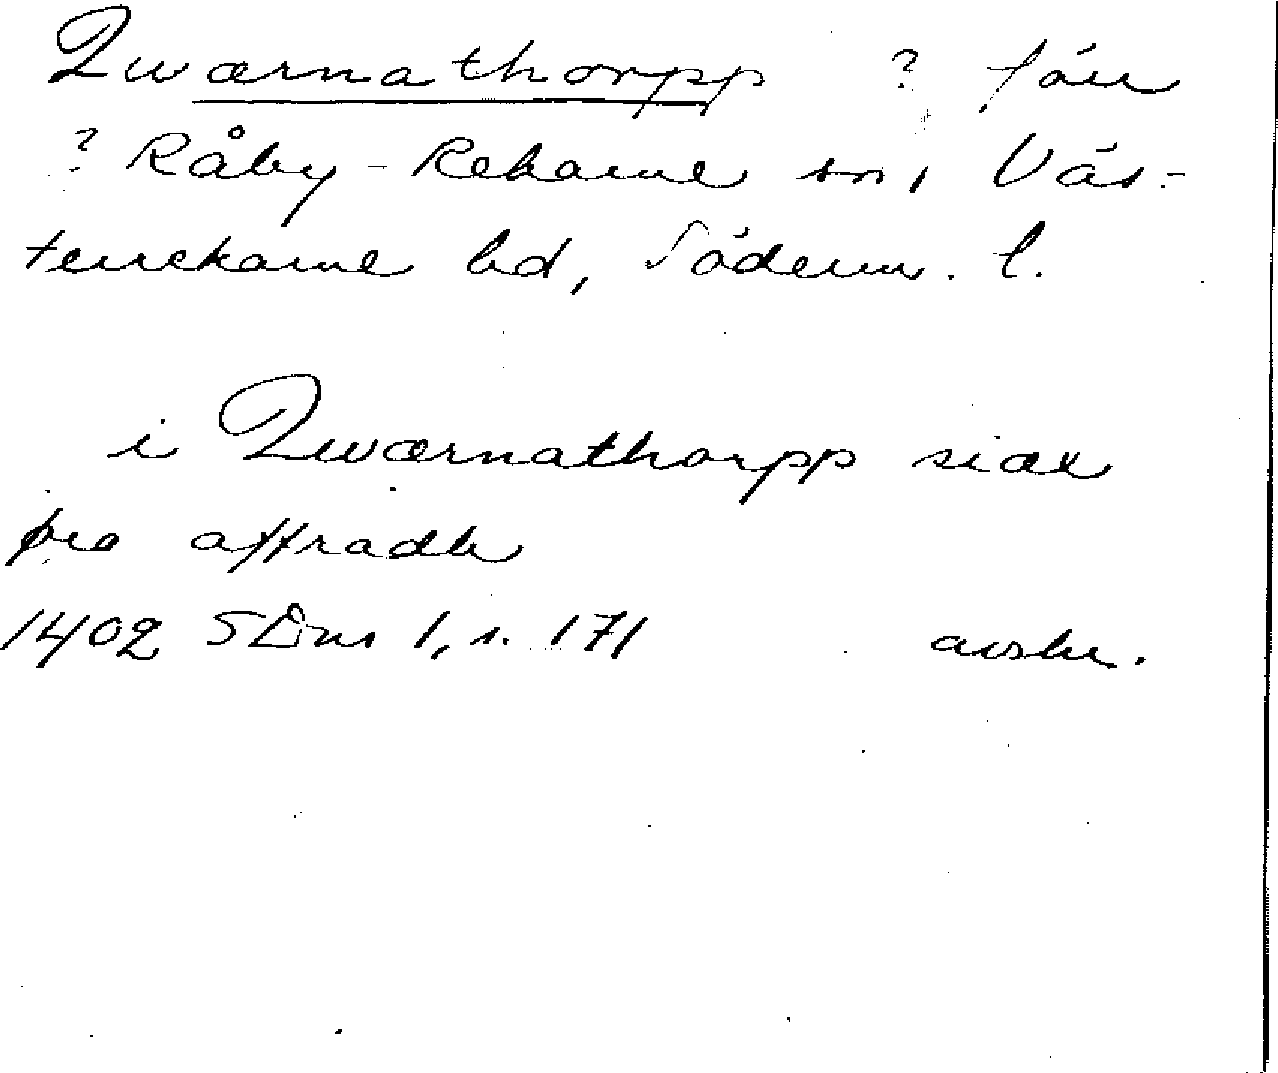 Qwærnathorpp ? förr
? Råby-Rekarne sn, Väs-
terrekarne hd, Söderm. l.
i Qwærnathorpp siæx
øre affradh
1402 SDns 1, s. 171 avskr.